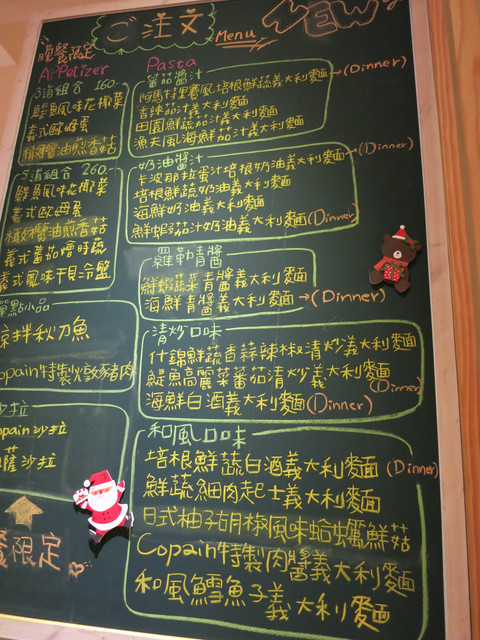 ご注文
Menu
NEW
晚餐限定
APPetizer
3道組合 160.
鯷魚風味花椰菜
義式歐姆蛋
橄欖醬油煎香菇
5道組合 260.
鯷魚風味花椰菜
義式歐姆蛋
橄欖醬油煎香菇
義式蕃茄燴時蔬
義式風味干貝冷盤
單點小品
涼拌秋刀魚
Copain特製燉豬肉
沙拉
Copain沙拉
薩沙拉
餐限定
Pasta
蕃茄醬汁
(Dinner)
阿馬村里賽風培根鮮蔬義大利麵
吉辣茄汁義大利麵
田園鮮蔬茄汁義大利麵
漁夫風海鮮茄汁義大利麵
奶油醬汁
(Dinner)
卡波那拉蛋汁培根奶油義大利麵
培根鮮蔬奶油義大利麵
海鮮奶油義大利麵
鮮蝦茄汁奶油義大利麵(Dinner)
羅勒青醬
鮮蝦蔬菜青醬義大利麵
海鮮青醬義大利麵→(Dinner)
清炒口味
什錦鮮蔬香蒜辣椒清炒義大利麵
鯷魚高麗菜蕃茄清炒義大利麵
(Dinner)
海鮮白酒義大利麵(Dinner)
和風口味
培根鮮蔬白酒義大利麵(Dinner)
鮮蔬細肉起士義大利麵
日式柚子胡椒風味蛤蠣鮮菇
Copain特製肉醬義大利麵
和風鱈魚子義大利麵